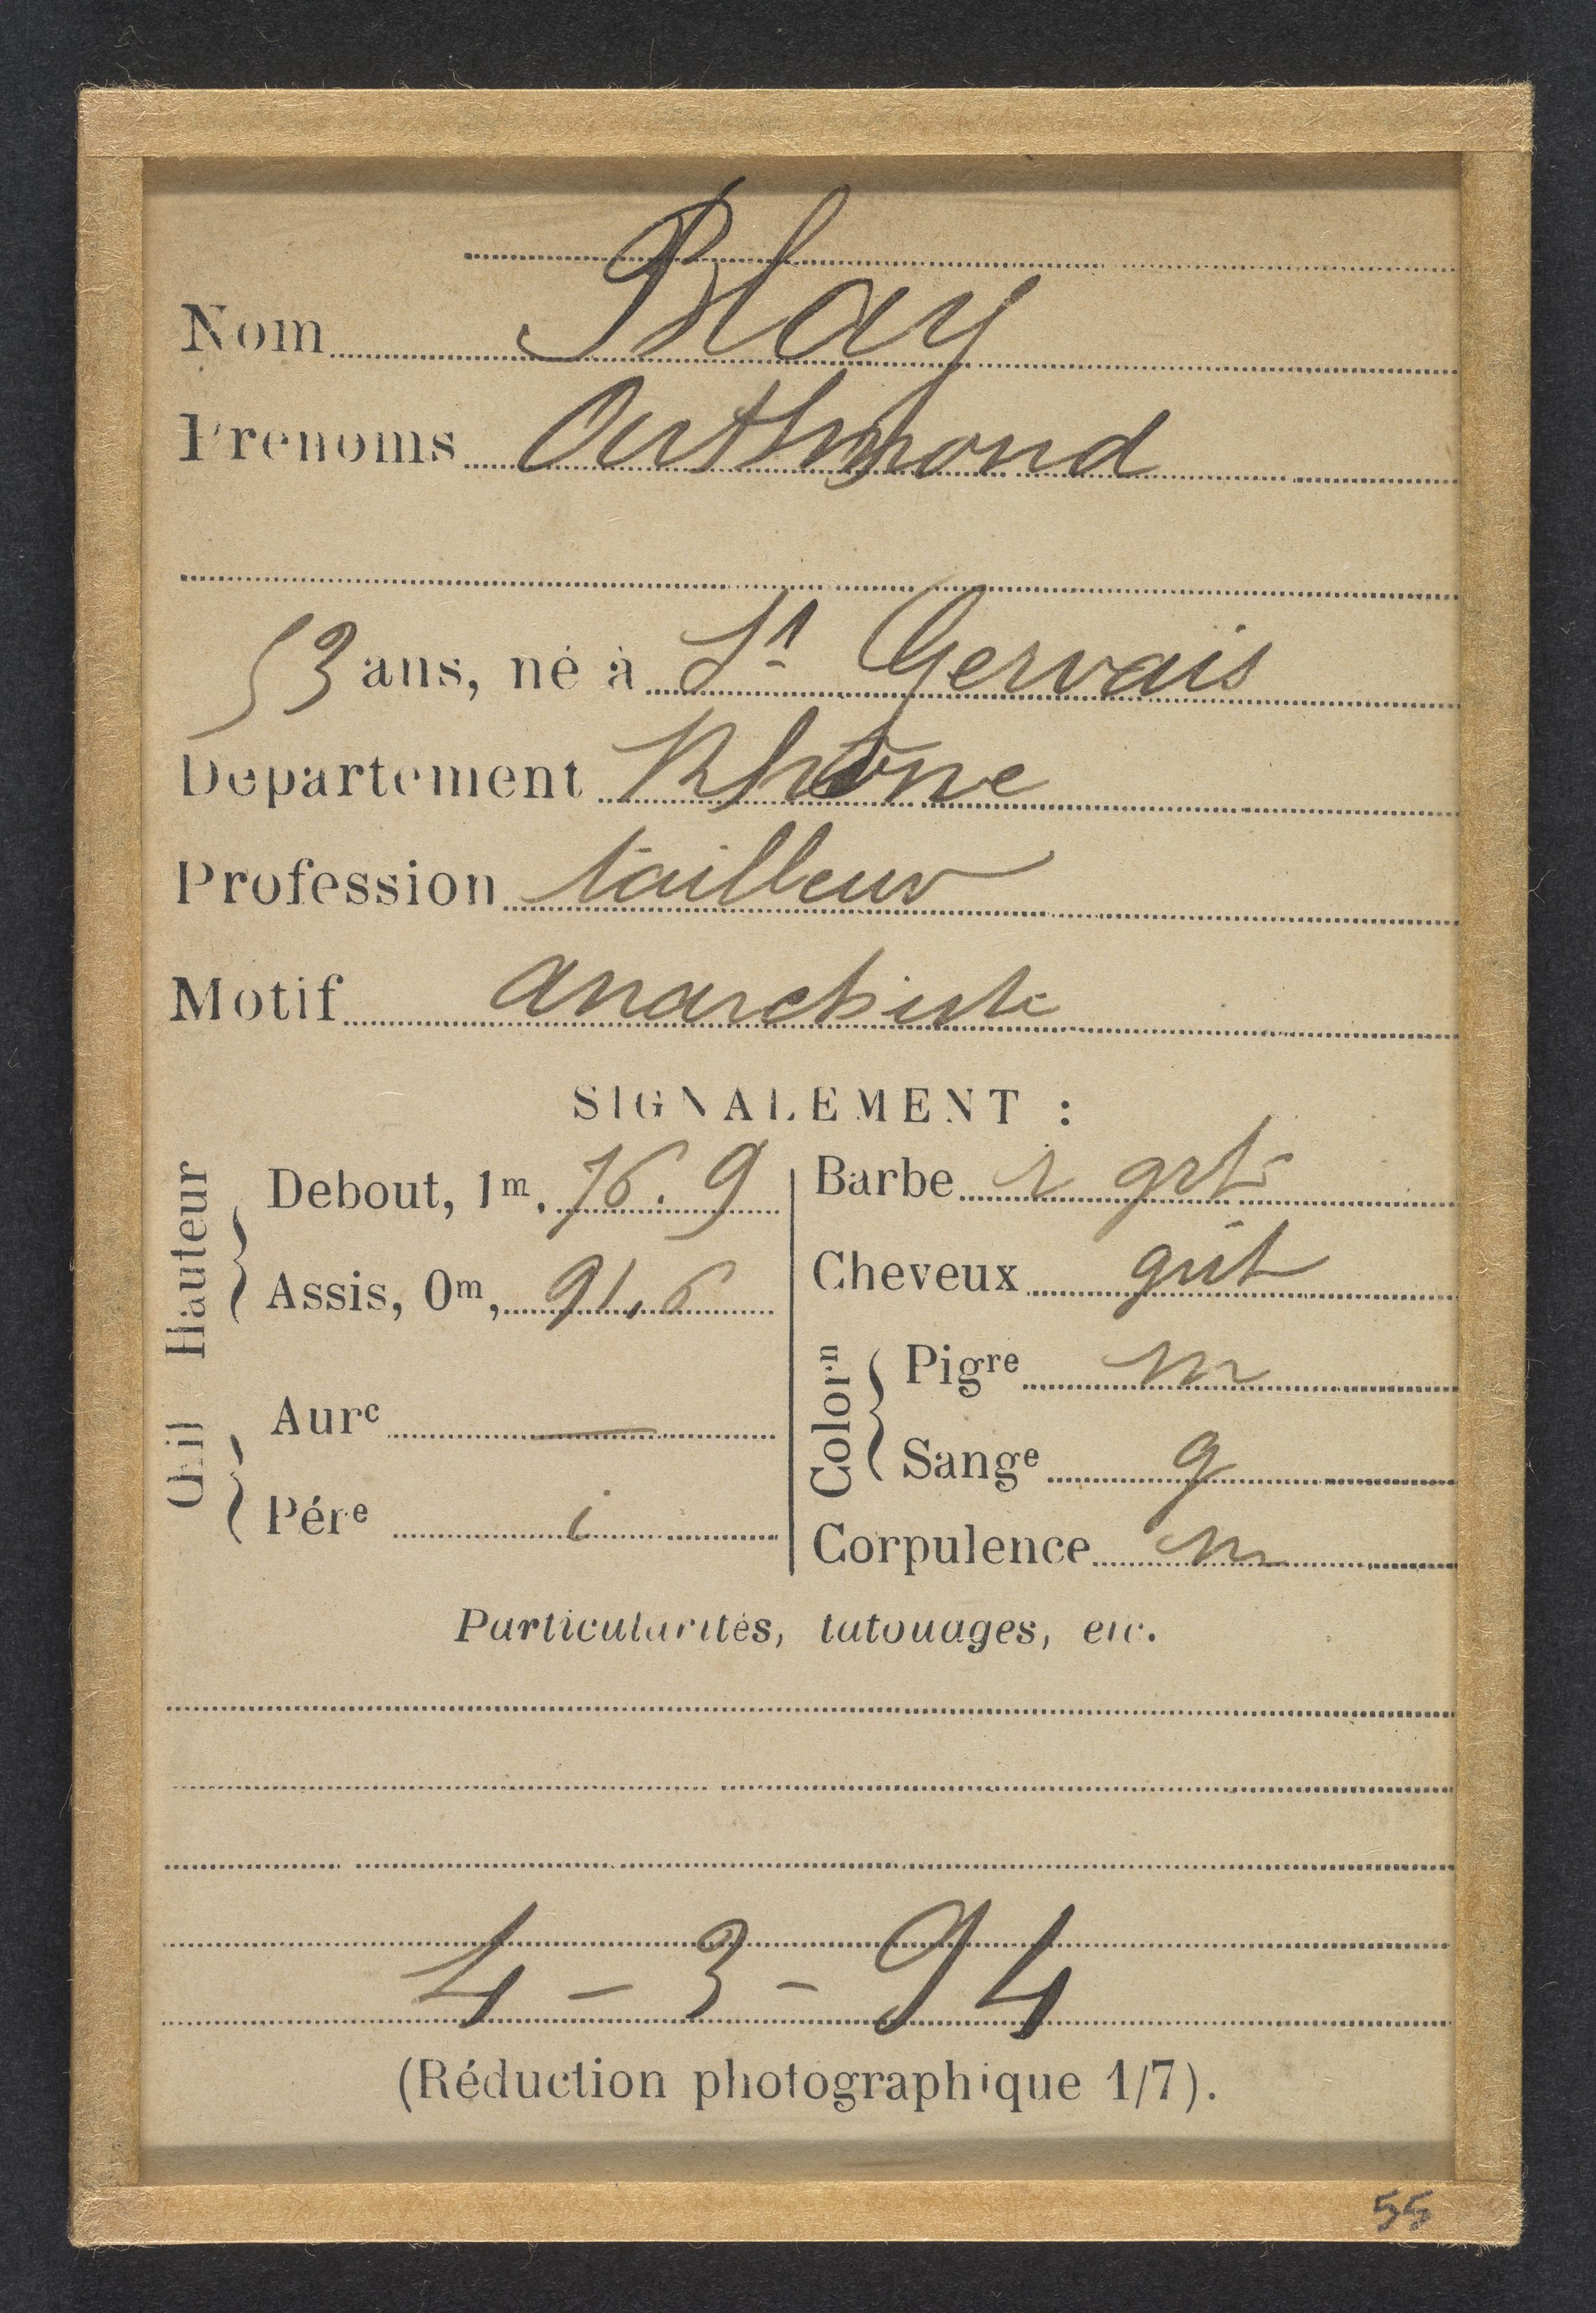 Nom Blay
Prénoms Outhmond
53 ans, né à St Gervais
Département Rhône
Profession tailleur
Motif anarchiste
SIGNALEMENT :
Hauteur
Debout, 1m, 76.9
Assis, 0m, 91,6
Œil
Aure —
Pére i
Barbe
Cheveux gris
Colorn
Pigre m
Sange g
Corpulence m
Particularités, tatouages, etc.
4 - 3 - 94
(Réduction photographique 1/7).
55